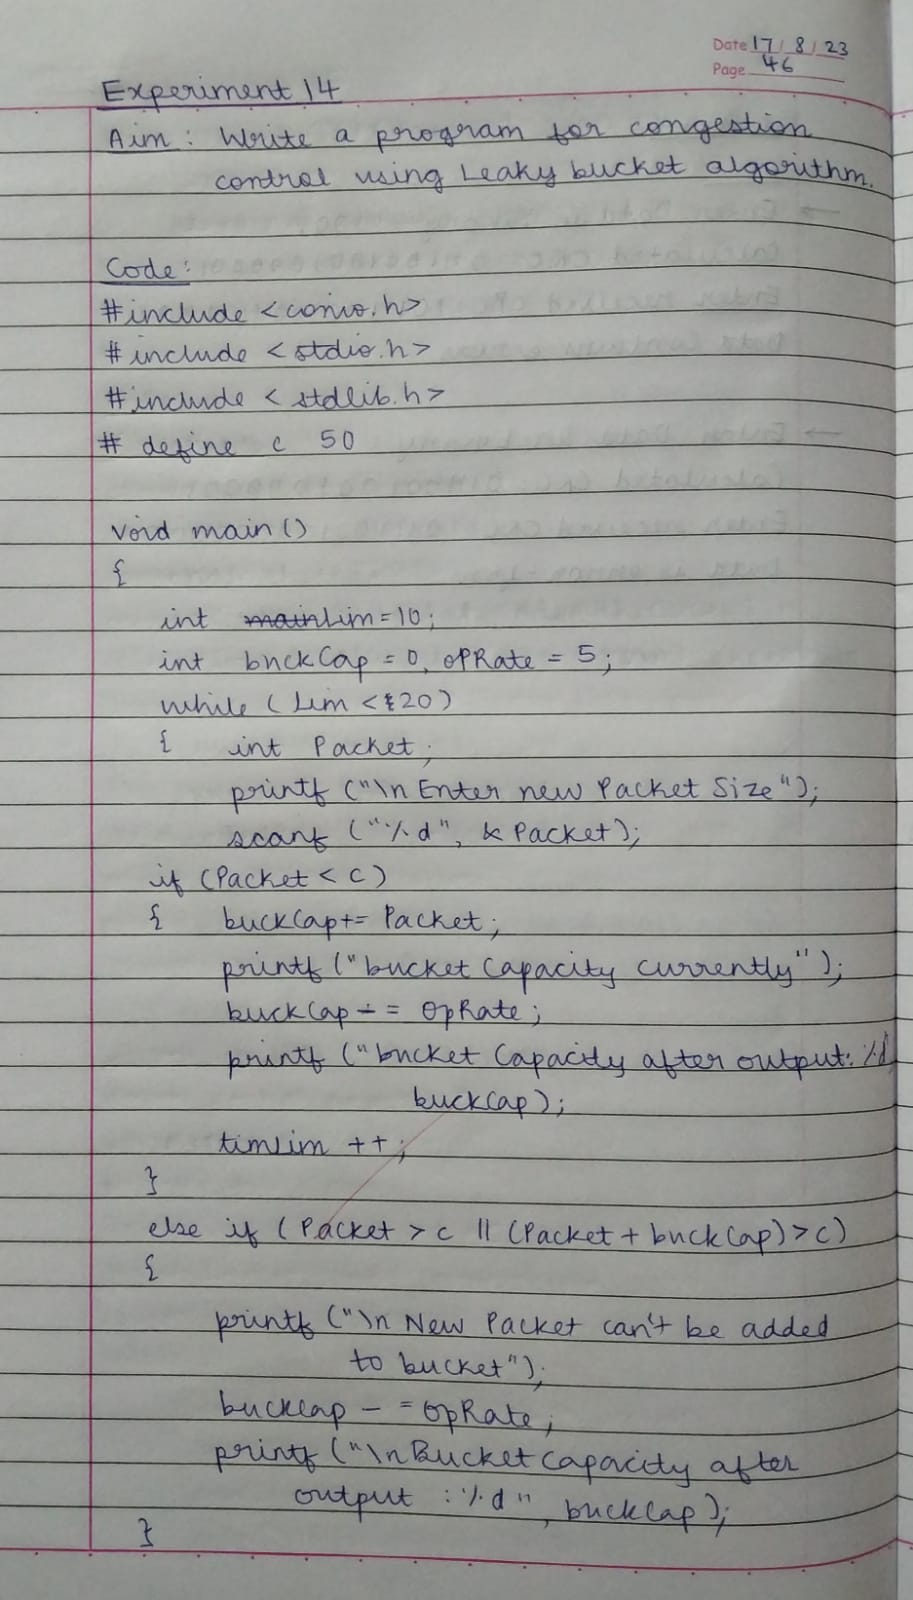 Date 17/8/23
Page 46
Experiment 14
Aim: Write a program for congestion
control using Leaky bucket algorithm.
Code:
#include <conio.h>
#include <stdio.h>
#include <stdlib.h>
# define c 50
void main()
{
int Lim=10;
int buckCap = 0, opRate = 5;
while (Lim < 20)
{ int Packet;
printf ("\n Enter new Packet Size");
scanf ("%d", & Packet);
if (Packet < c)
{ buckCap+= Packet;
printf ("bucket Capacity currently");
buckCap -= OpRate;
printf ("bucket Capacity after output: %d
buckCap);
timLim ++;
}
else if (Packet > c || (Packet + buckCap) > c)
{
printf ("\n New Packet can't be added
to bucket");
buckCap - = OpRate;
printf ("\n Bucket Capacity after
output : %d", buckCap);
}